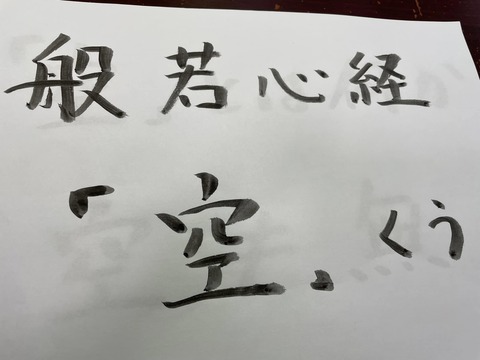 般若心経
「空」くう